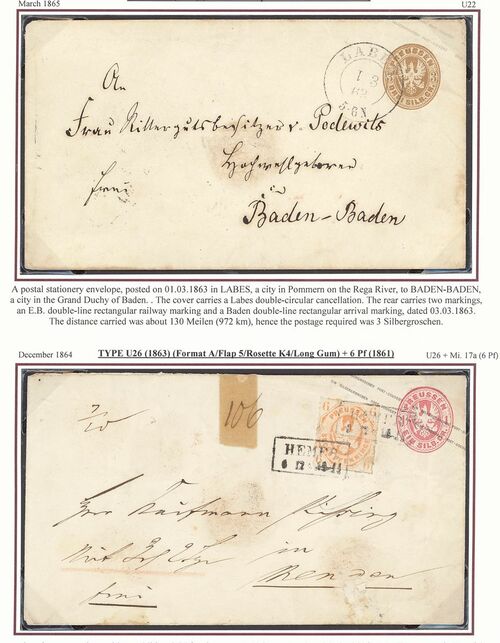 March 1865
U22
PREUSSEN
SILB. GR.
1 3
5-6 N
An
Frau Rittergutsbesitzer v. Podewils
Hochwohlgeboren
frei
zu
Baden-Baden
A postal stationery envelope, posted on 01.03.1863 in LABES, a city in Pommern on the Rega River, to BADEN-BADEN,
a city in the Grand Duchy of Baden. . The cover carries a Labes double-circular cancellation. The rear carries two markings,
an E.B. double-line rectangular railway marking and a Baden double-line rectangular arrival marking, dated 03.03.1863.
The distance carried was about 130 Meilen (972 km), hence the postage required was 3 Silbergroschen.
December 1864
TYPE U26 (1863) (Format A/Flap 5/Rosette K4/Long Gum) + 6 Pf (1861)
U26 + Mi. 17a (6 Pf)
106
PREUSSEN
EIN SILB. GR.
6
Herr Kaufmann
in
frei